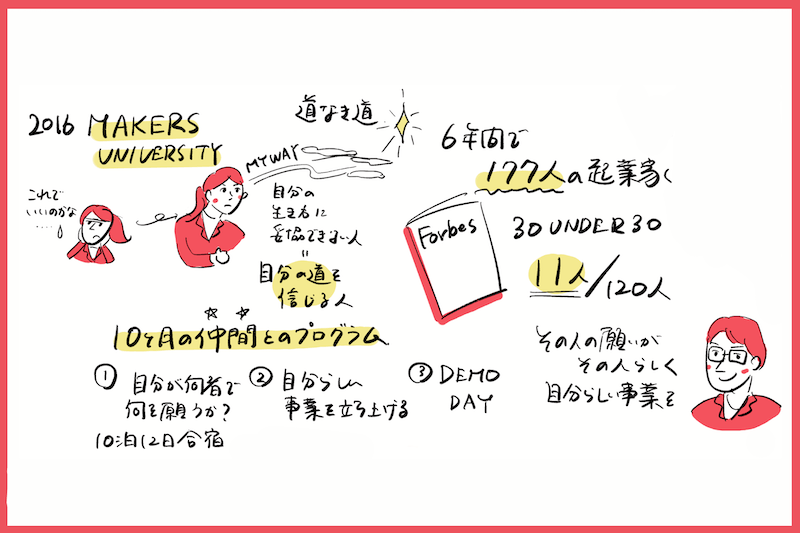 2016 MAKERS
UNIVERSITY
これで
いいのかな
....
MY WAY
道なき道
自分の
生き方に
妥協できない人
=
自分の道を
信じる人
10ヶ月の仲間とのプログラム
① 自分が何者で
何を願うか?
10泊12日合宿
② 自分らしい
事業を立ち上げる
③ DEMO
DAY
6年間で
177人の起業家
Forbes
30 UNDER 30
11人/120人
その人の願いが
その人らしく
自分らしい事業を